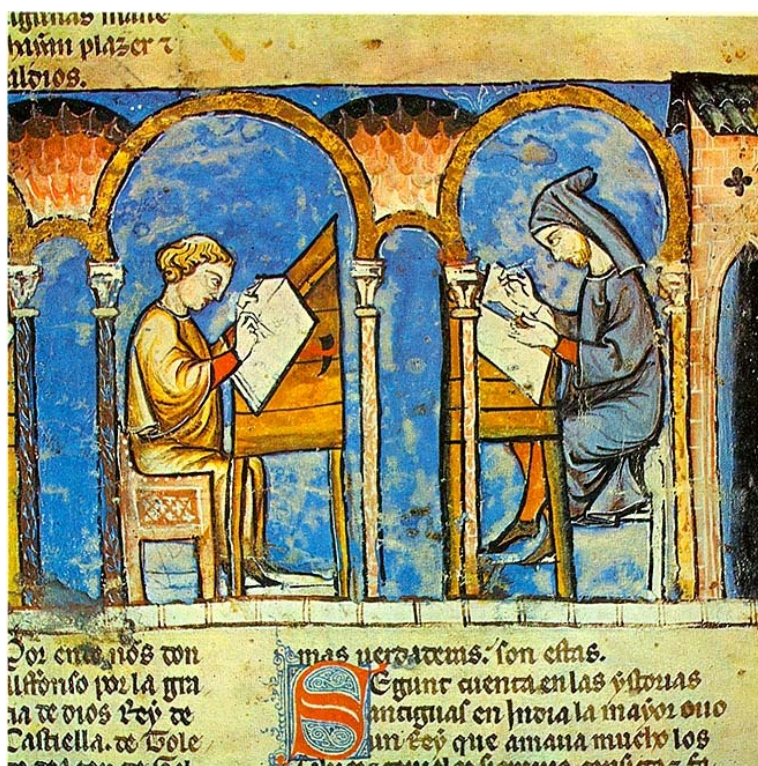 algunas mane
plazer τ
aldios.
Por ende nos don
Alffonso por la gra
cia de dios Rey de
Castiella. de Tole
mas uerdaderas. son estas.
Segunt cuenta en las ystorias
antiguas en India la mayor ouo
un Rey que amaua mucho los